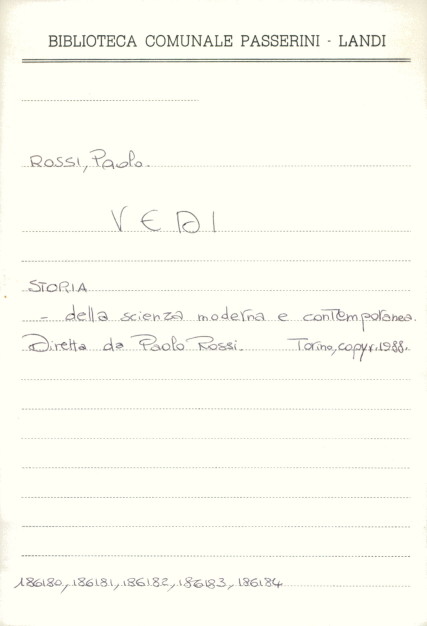 BIBLIOTECA COMUNALE PASSERINI - LANDI
ROSSI, Paolo.
VEDI
STORIA
- della scienza moderna e contemporanea.
Diretta da Paolo Rossi. Torino, copyr. 1988.
186180, 186181, 186182, 186183, 186184